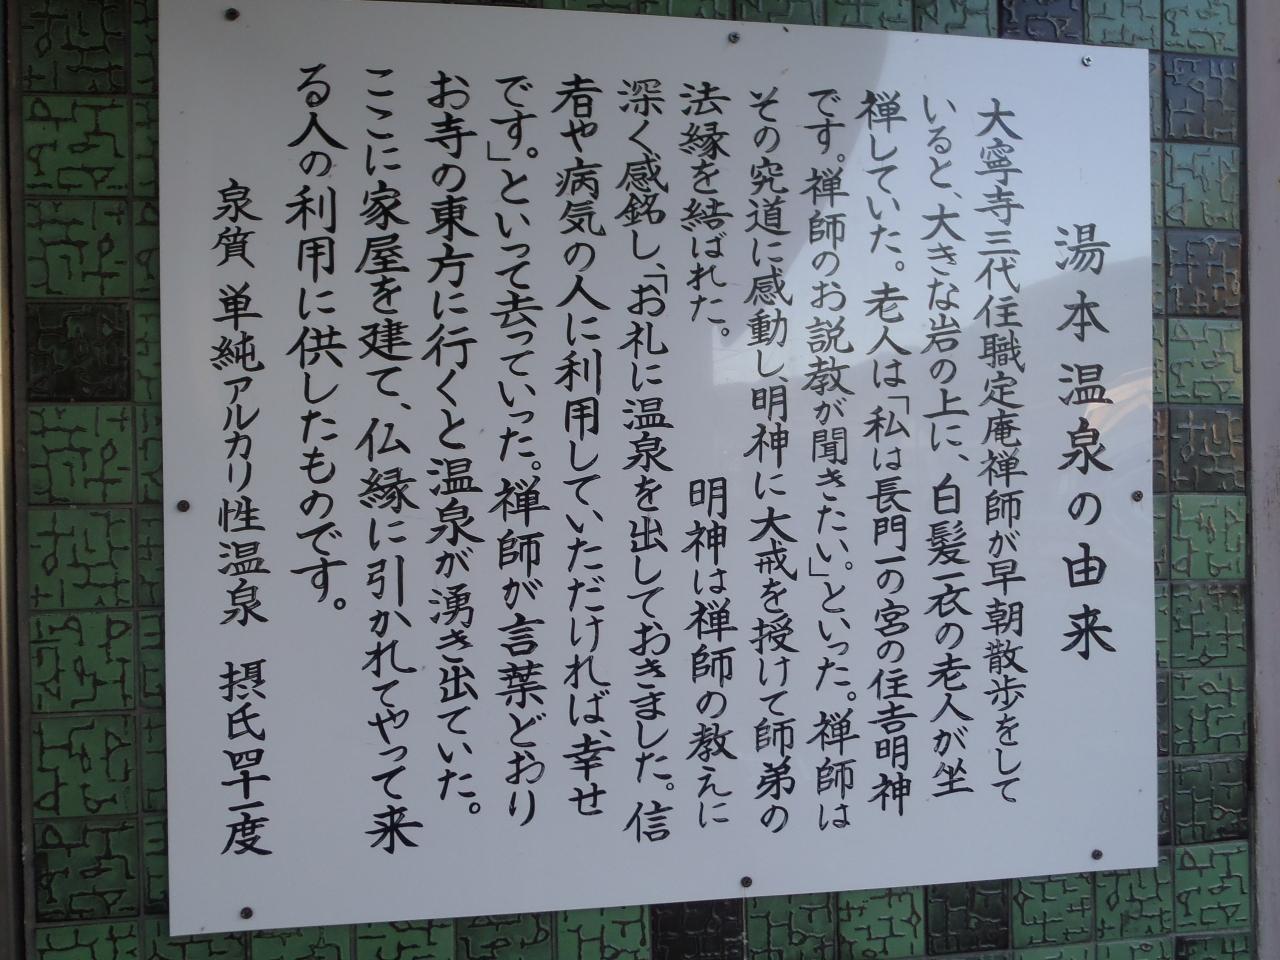 湯本温泉の由来
大寧寺三代住職定庵禅師が早朝散歩をして
いると、大きな岩の上に、白髪一衣の老人が坐
禅していた。老人は「私は長門一の宮の住吉明神
です。禅師のお説教が聞きたい。」といった。禅師は
その究道に感動し、明神に大戒を授けて師弟の
法縁を結ばれた。　明神は禅師の教えに
深く感銘し、「お礼に温泉を出しておきました。信
者や病気の人に利用していただければ、幸せ
です。」といって去っていった。禅師が言葉どおり
お寺の東方に行くと温泉が湧き出ていた。
ここに家屋を建て、仏縁に引かれてやって来
る人の利用に供したものです。
泉質 単純アルカリ性温泉　摂氏四十一度